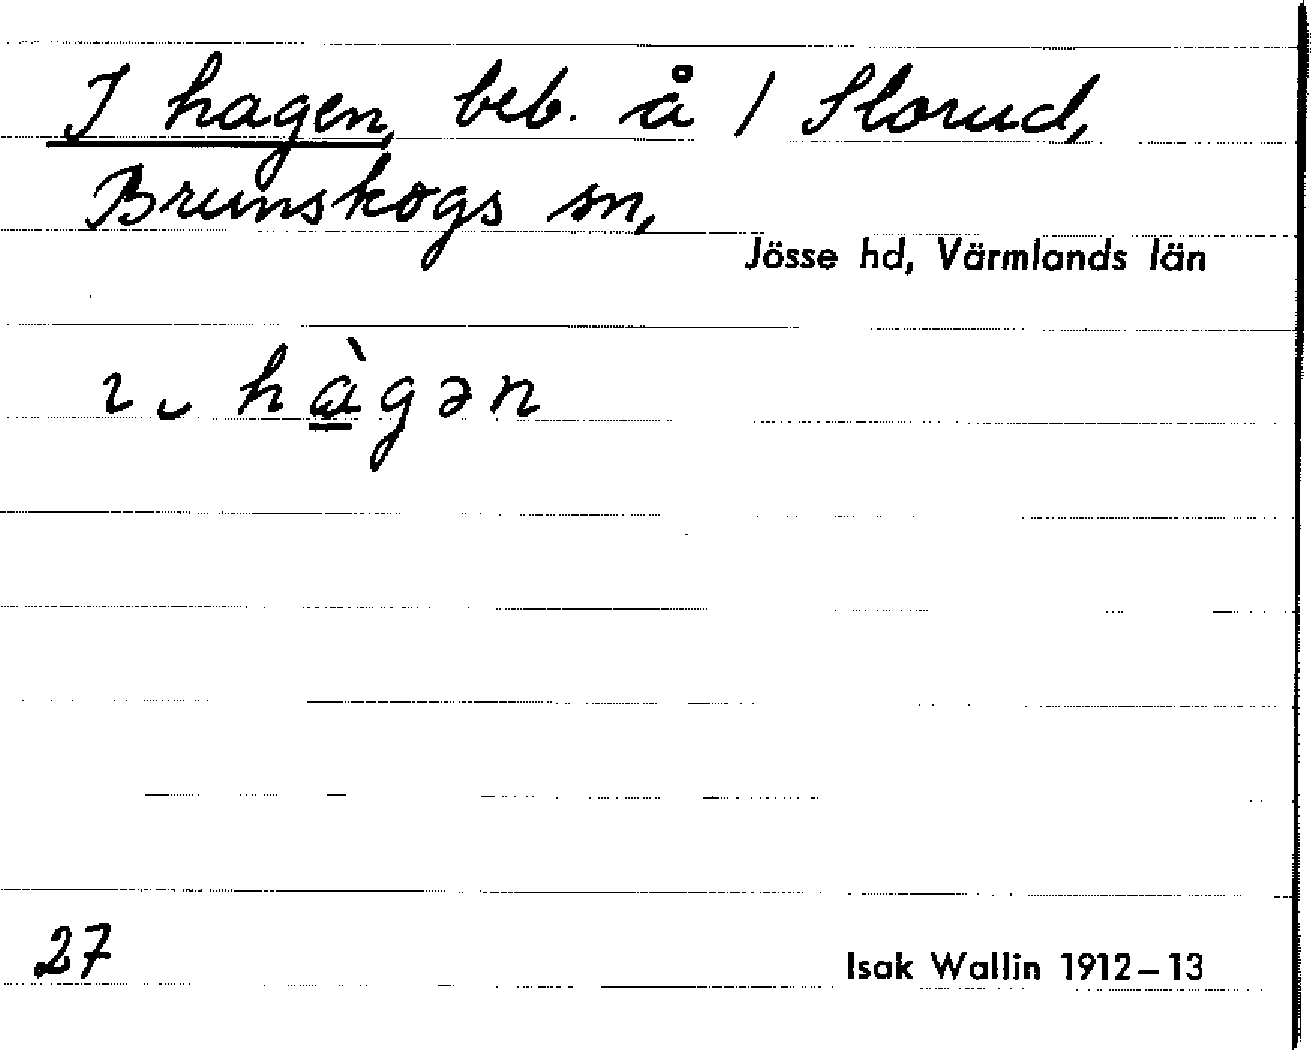 I hagen, beb. å 1 Slorud,
Brunskogs sn,
Jösse hd, Värmlands län
ɩ ̮ hàgən
27
Isak Wallin 1912–13